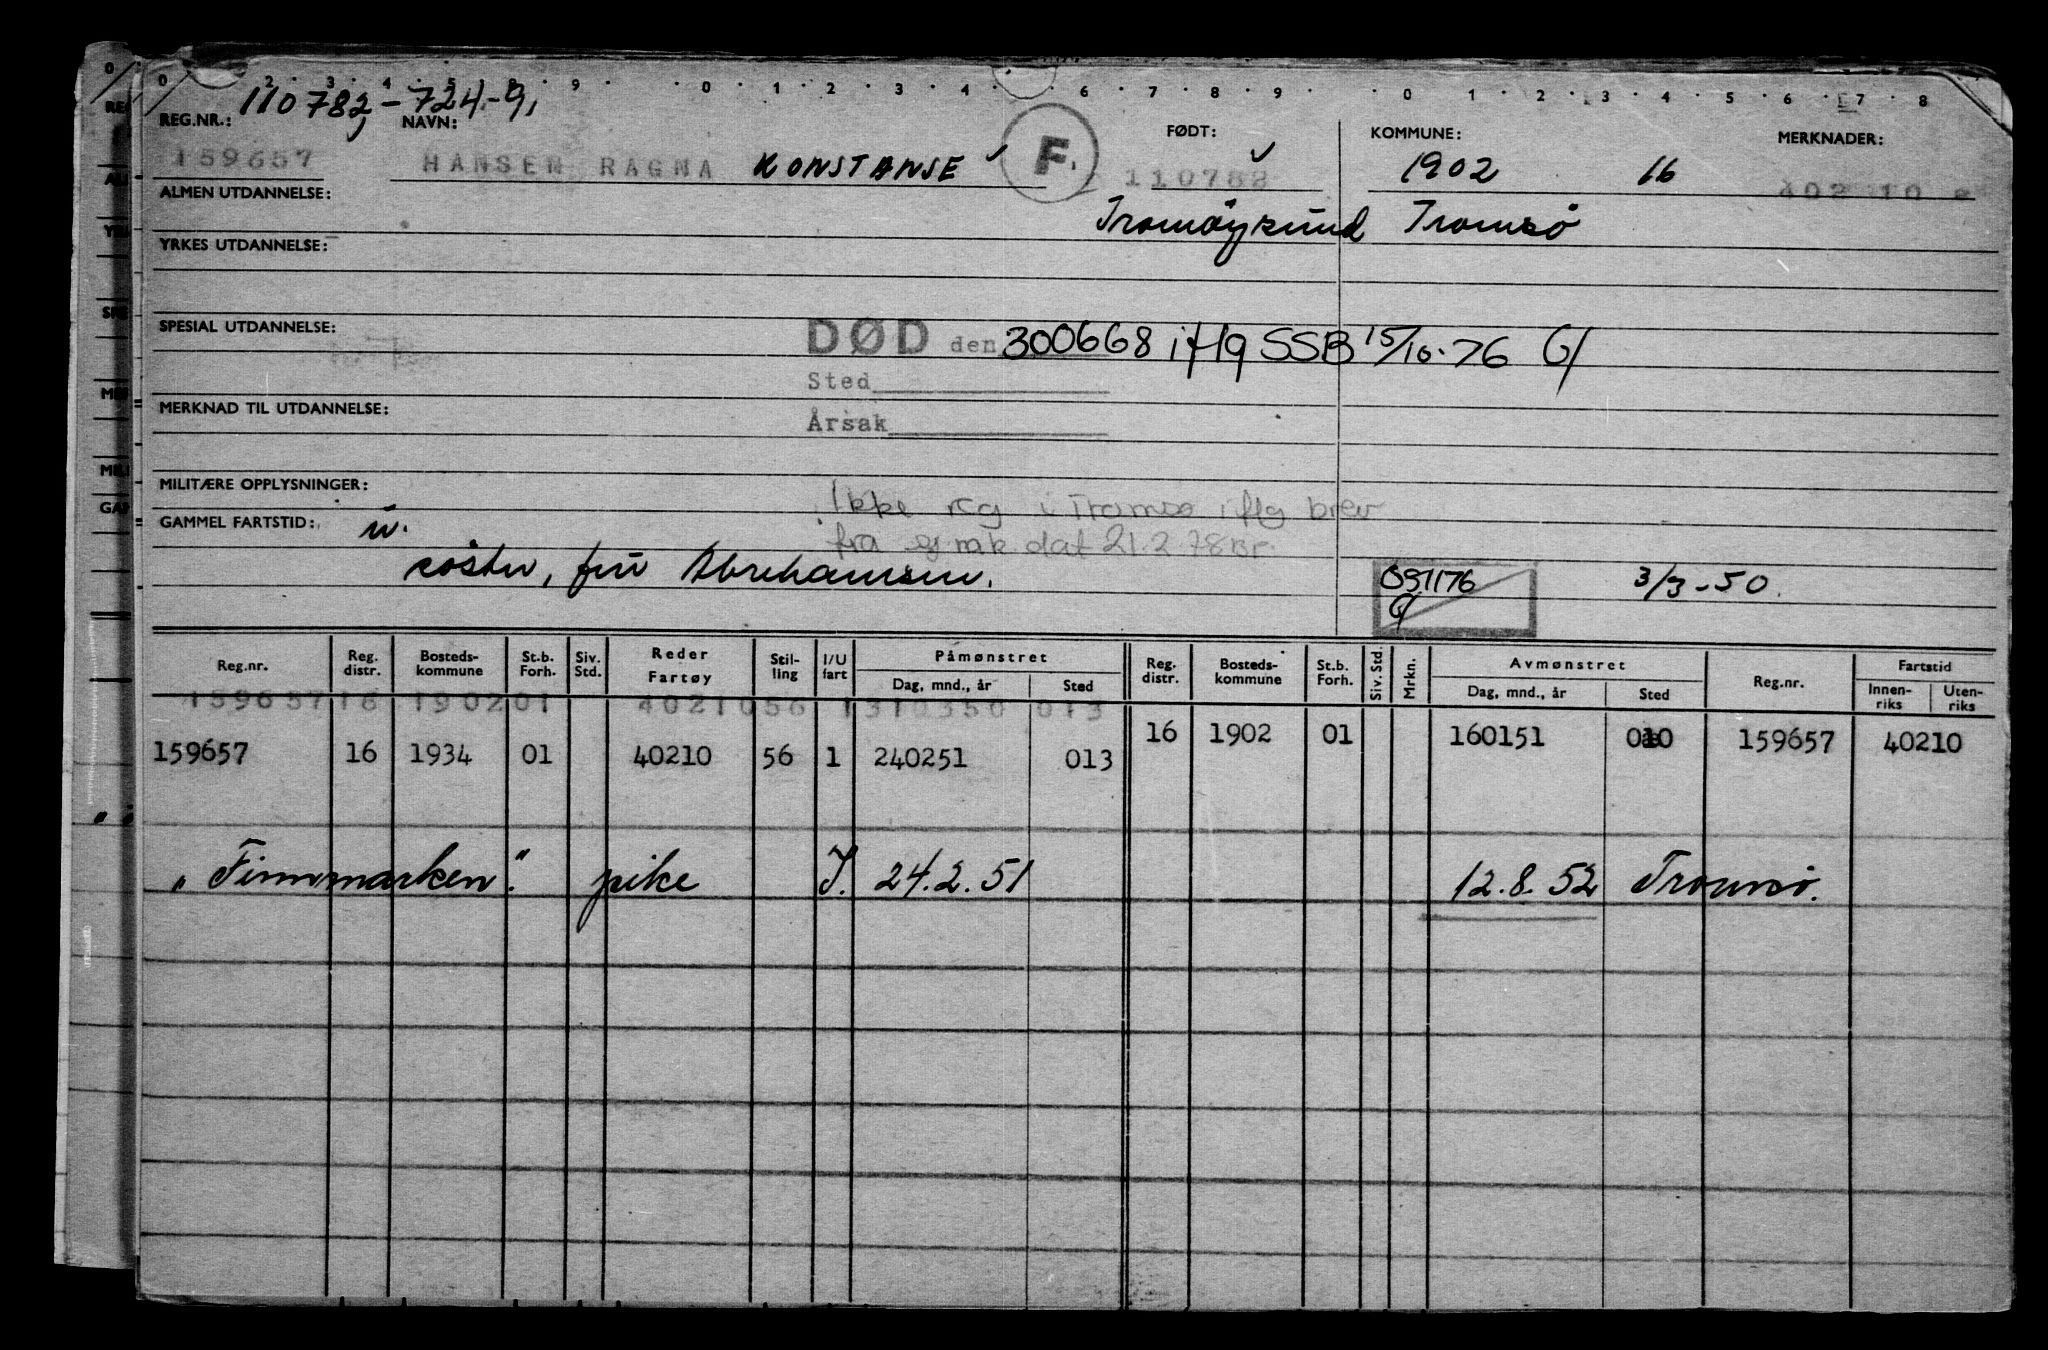 110782-724-9,
REG.NR.: NAVN: FØDT: KOMMUNE: MERKNADER:
159657 HANSEN RAGNA KONSTANSE F. 110782 1902 16 402 10
ALMEN UTDANNELSE: Tromsø
YRKES UTDANNELSE:
SPESIAL UTDANNELSE: DØD den 300668 iflg SSB 15/10-76 G/
Sted
MERKNAD TIL UTDANNELSE:
Årsak
MILITÆRE OPPLYSNINGER: Ikke reg i Tromsø iflg brev
GAMMEL FARTSTID: u. fra mk. dat 21.2.78 Br.
søster, fru Abrahamsen. 091176 3/3-50.
G/
Reg.nr. Reg. distr. Bosteds- kommune St.b. Forh. Siv. Std. Reder Fartøy Stil- ling I/U fart Påmønstret Dag, mnd., år Sted Reg. distr. Bosteds- kommune St.b. Forh. Siv. Std. Mrkn. Avmønstret Dag, mnd., år Sted Reg.nr. Fartstid Innen- riks Uten- riks
159657 16 1902 01 40210 56 1 310350 013 16 1902 01 160151 010 159657 40210
159657 16 1934 01 40210 56 1 240251 013
"Finnmarken". pike I. 24.2.51 12.8.52 Tromsø.